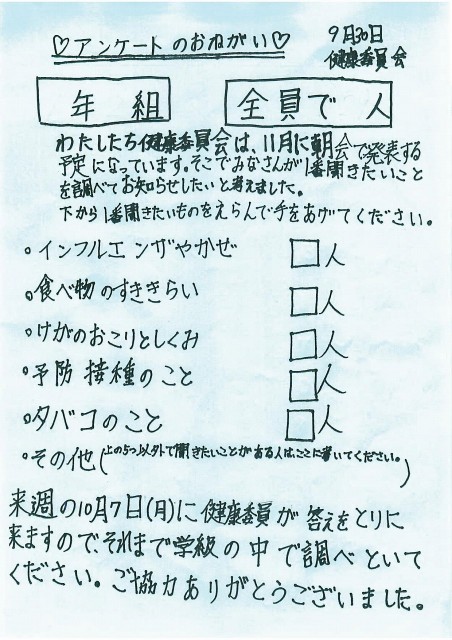 ♡アンケートのおねがい♡
9月30日
健康委員会
年 組
全員で 人
わたしたち健康委員会は、11月に朝会で発表する
予定になっています。そこでみなさんが1番聞きたいこと
を調べてお知らせしたいと考えました。
下から1番聞きたいものをえらんで手をあげてください。
・インフルエンザやかぜ □人
・食べ物のすききらい □人
・けがのおこりとしくみ □人
・予防接種のこと □人
・タバコのこと □人
・その他(上の5つ以外で聞きたいことがある人は、ここに書いてください。)
来週の10月7日(月)に健康委員が答えをとりに
来ますので、それまで学級の中で調べといて
ください。ご協力ありがとうございました。